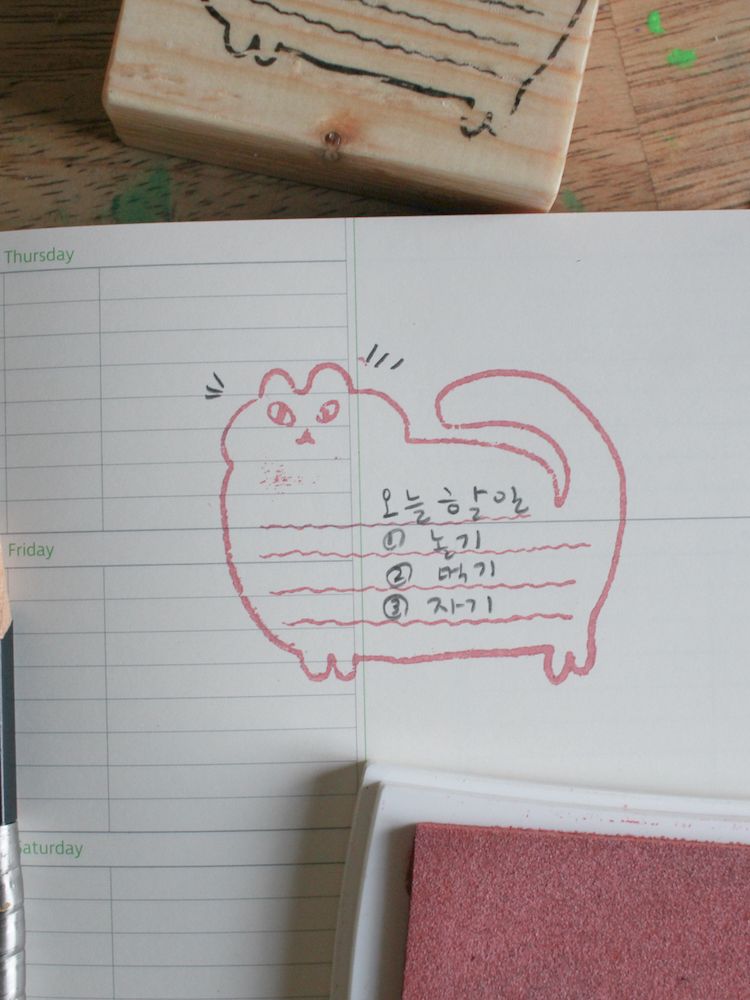 Thursday
오늘 할 일
① 놀기
② 먹기
③ 자기
Friday
Saturday